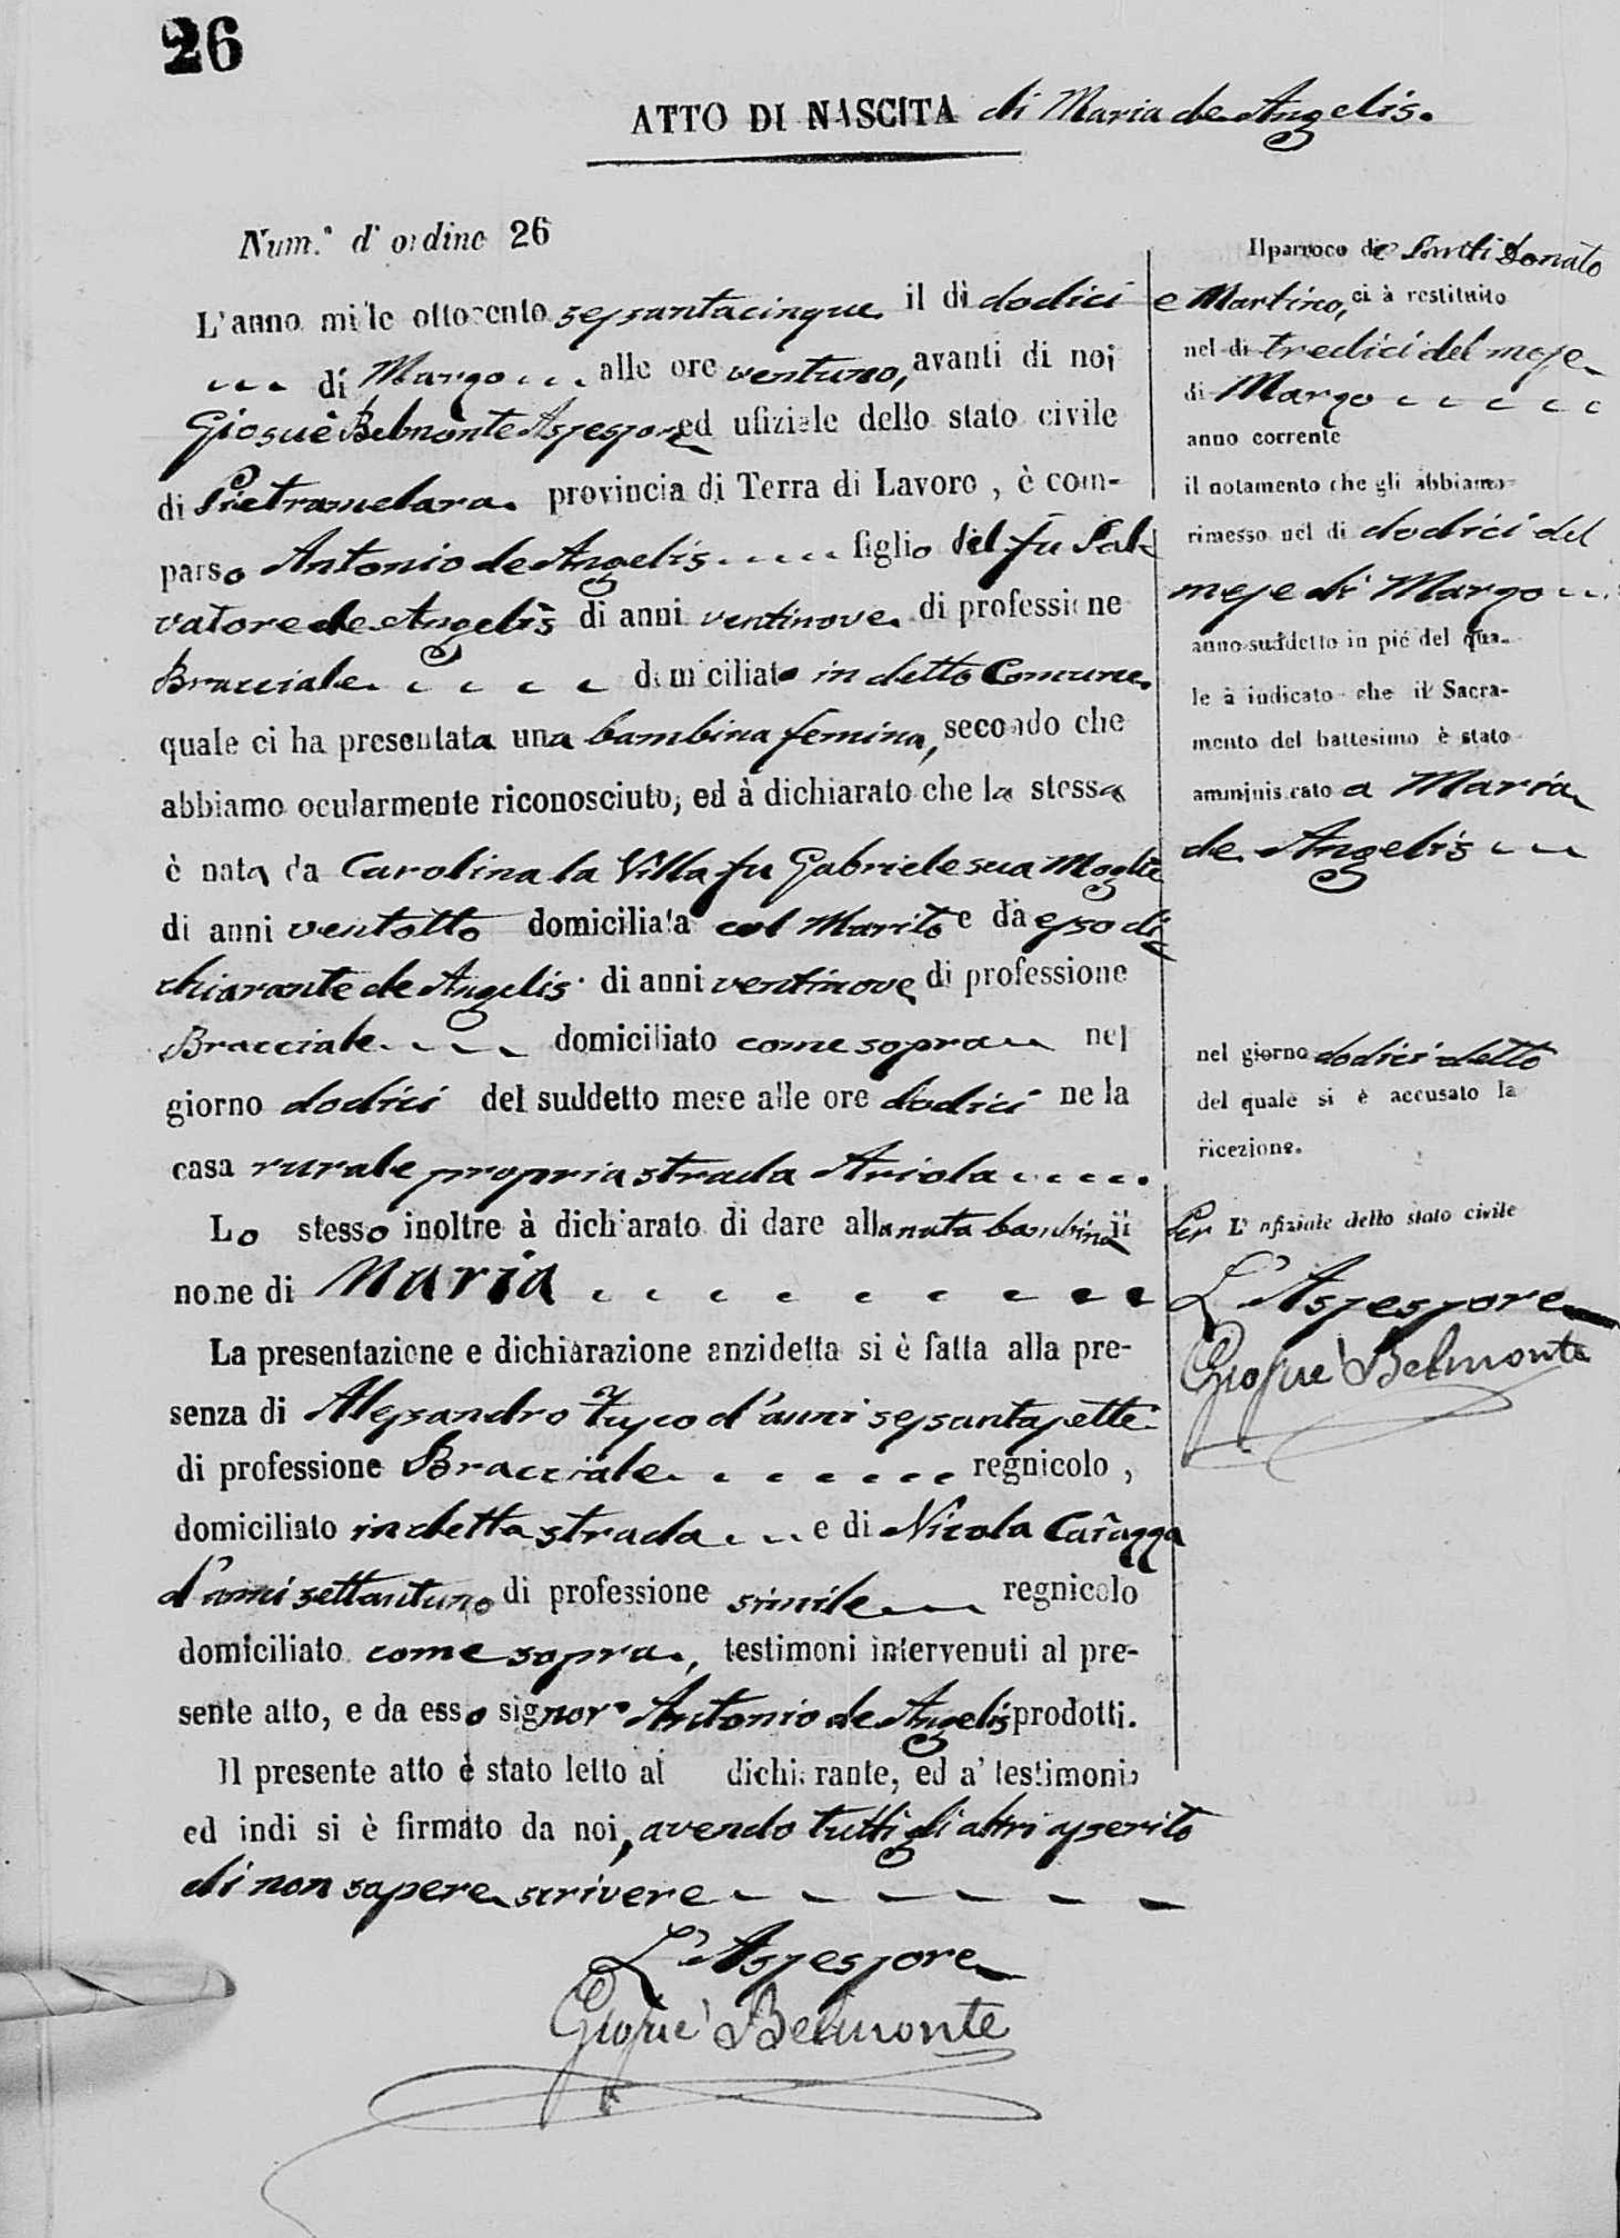 26
ATTO DI NASCITA di Maria de Angelis.
Num.° d'ordine 26
L'anno mille ottocento sessantacinque il dì dodici
di Marzo alle ore ventuno, avanti di noi
Giosuè Belmonte Assessore ed ufiziale dello stato civile
di Pietramelara provincia di Terra di Lavoro, è com-
parso Antonio de Angelis figlio del fu Sal-
vatore de Angelis di anni ventinove di professione
Bracciale domiciliato in detto Comune
quale ci ha presentata una bambina femina, secondo che
abbiamo ocularmente riconosciuto, ed à dichiarato che la stessa
è nata da Carolina la Villa fu Gabriele sua Moglie
di anni ventotto domiciliata col Marito e da esso di-
chiarante de Angelis di anni ventinove di professione
Bracciale domiciliato come sopra nel
giorno dodici del suddetto mese alle ore dodici ne la
casa rurale propria strada Ariola
Lo stesso inoltre à dichiarato di dare alla nata bambina il
nome di Maria
La presentazione e dichiarazione anzidetta si è fatta alla pre-
senza di Alessandro d'anni sessantasette
di professione Bracciale regnicolo,
domiciliato in detta strada e di Nicola Caiazza
d'anni settantuno di professione simile regnicolo
domiciliato come sopra, testimoni intervenuti al pre-
sente atto, e da esso signor Antonio de Angelis prodotti.
Il presente atto è stato letto al dichiarante, ed a' testimoni,
ed indi si è firmato da noi, avendo tutti gli altri asserito
di non sapere scrivere
L'Assessore
Giosuè Belmonte
Il parroco de' Santi Donato
e Martino, ci à restituito
nel dì tredici del mese
di Marzo
anno corrente
il notamento che gli abbiamo
rimesso nel dì dodici del
mese di Marzo
anno suddetto in piè del qua-
le à indicato che il Sacra-
mento del battesimo è stato
amministrato a Maria
de Angelis
nel giorno dodici detto
del quale si è accusato la
ricezione.
Per L'ufiziale dello stato civile
L'Assessore
Giosuè Belmonte